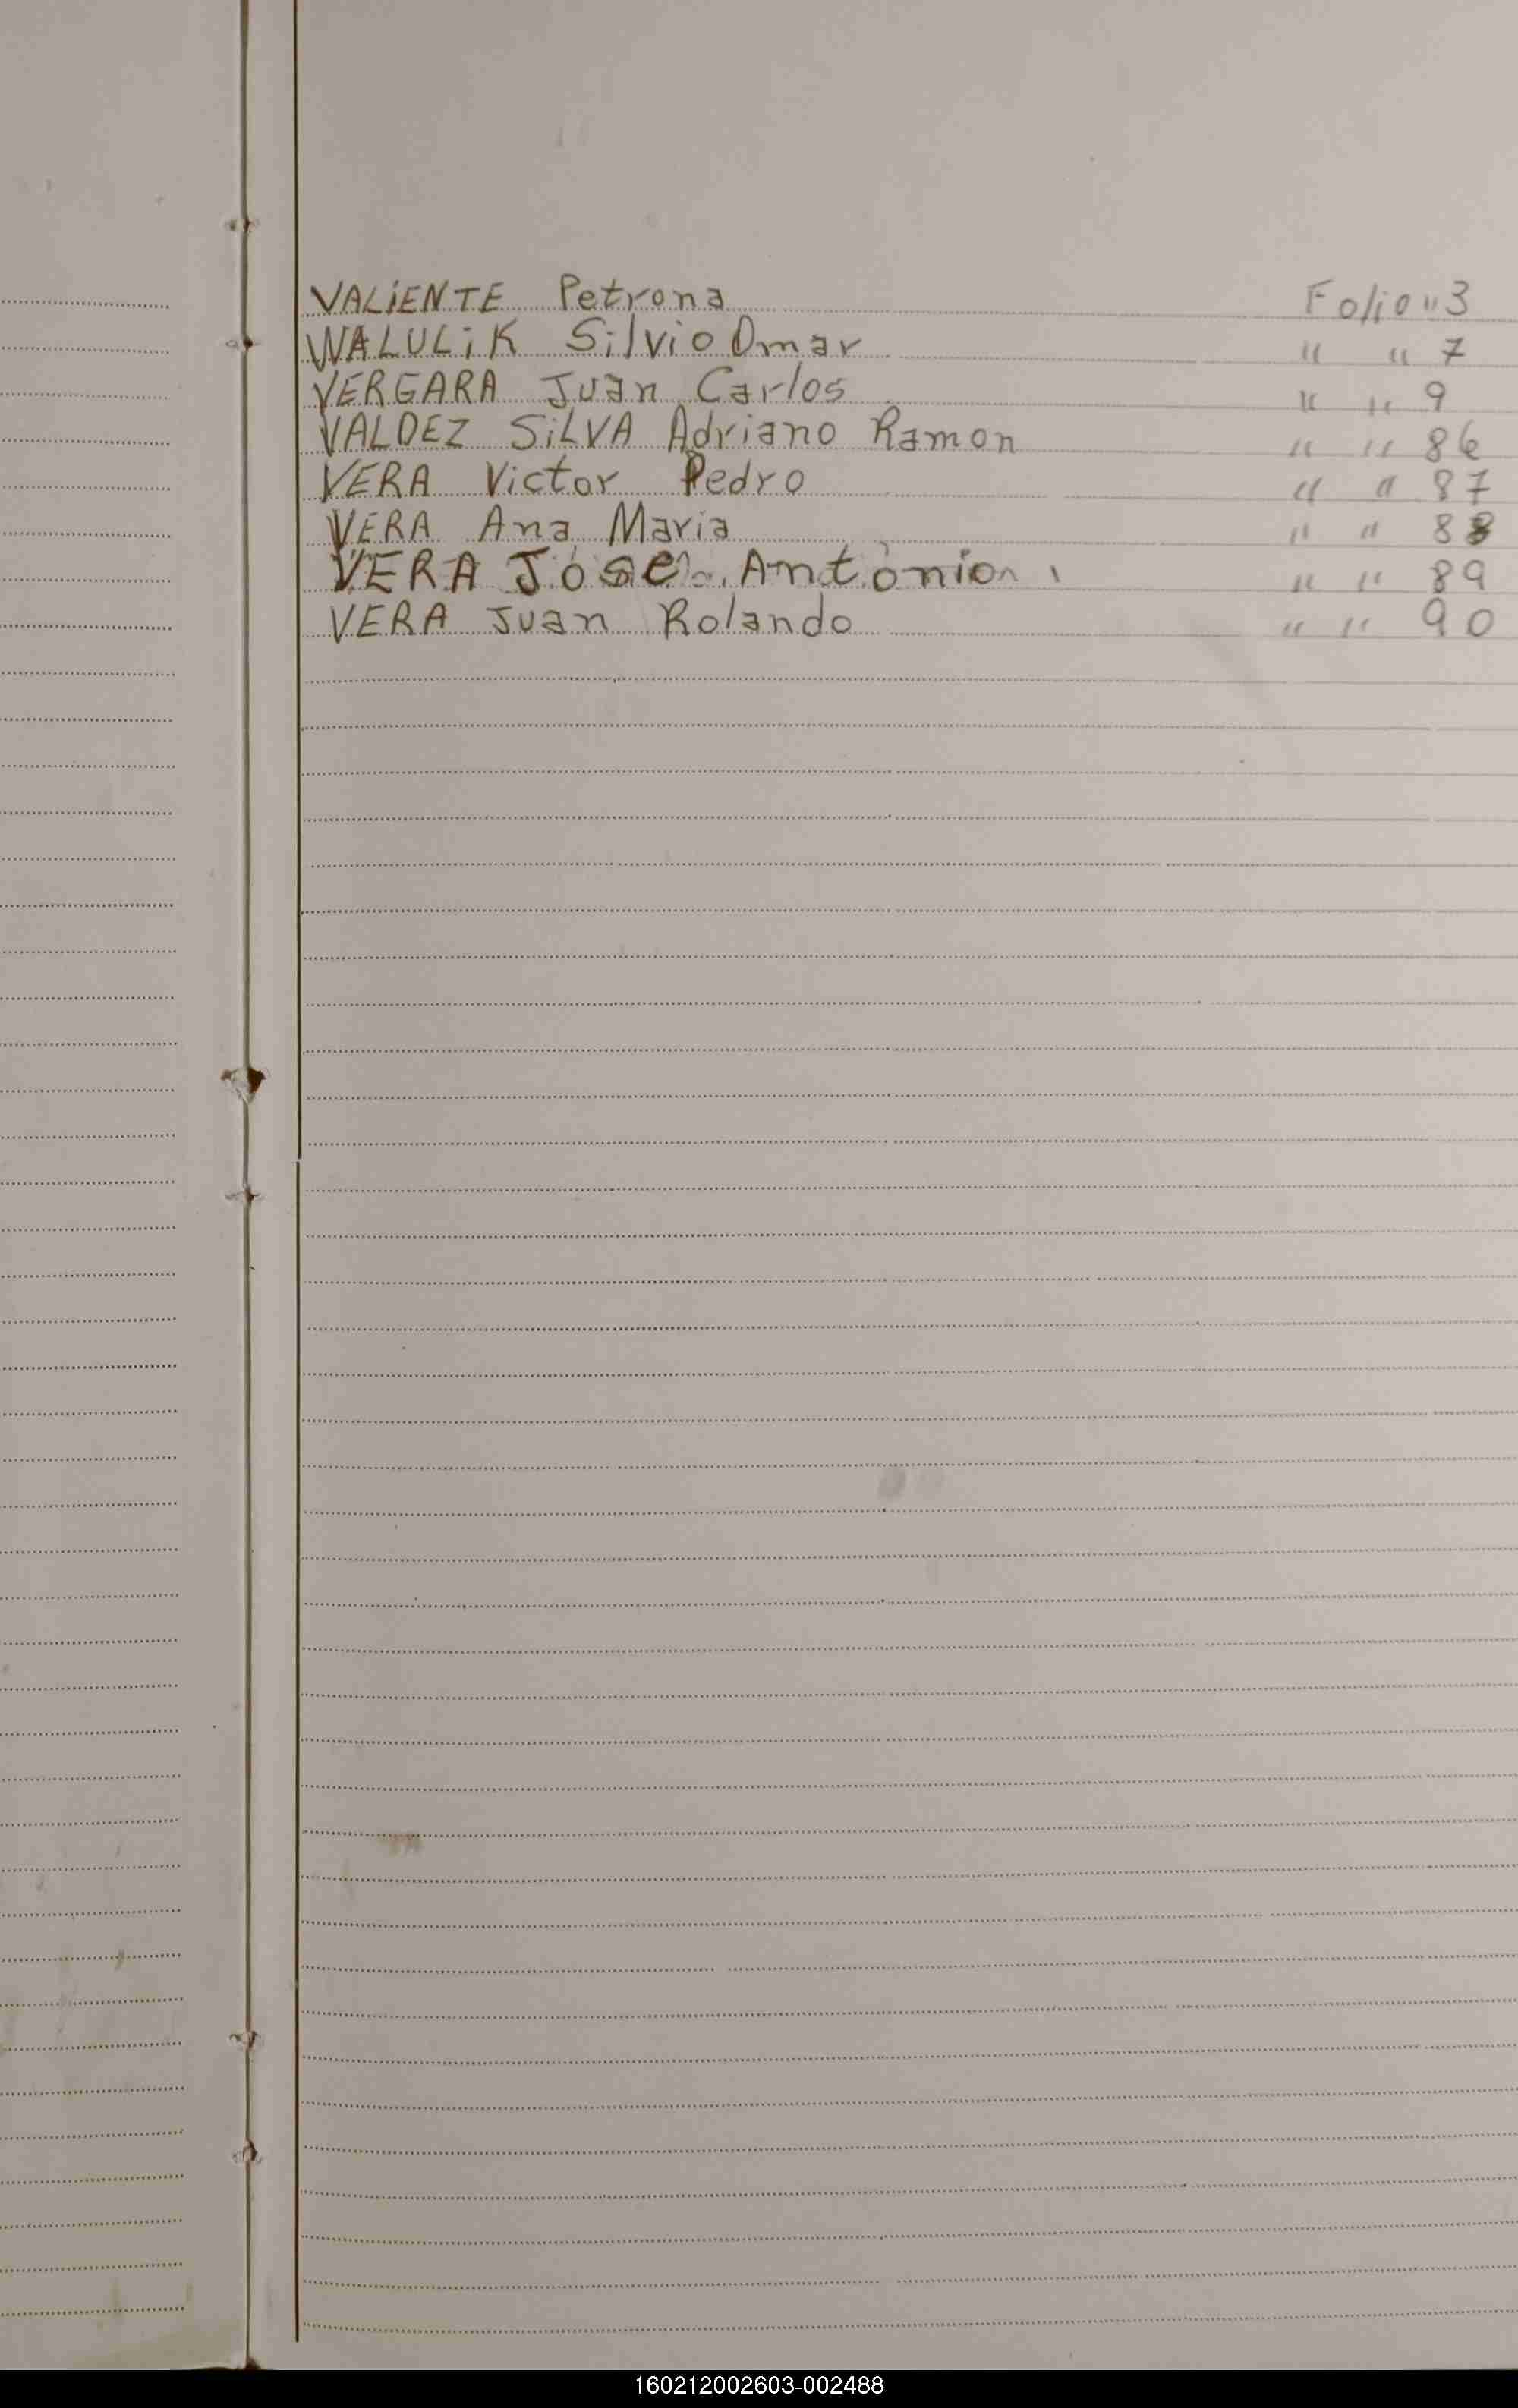 VALiENTE Petrona Folio " 3
WALULiK Silvio Omar " " 7
VERGARA Juan Carlos " " 9
VALDEZ SiLVA Adriano Ramon " " 86
VERA Victor Pedro " " 87
VERA Ana Maria " " 88
VERA José Antonio " " 89
VERA Juan Rolando " " 90
160212002603-002488